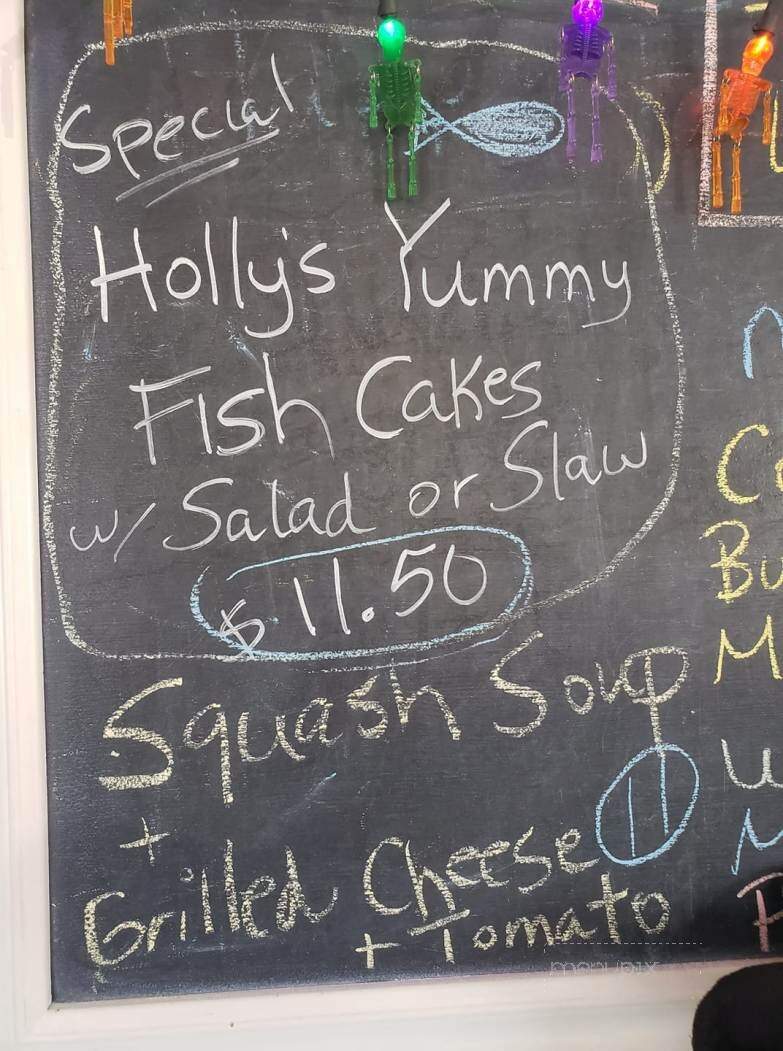 Special
Holly's Yummy
Fish Cakes
w/ Salad or Slaw
$11.50
Squash Soup
+
11
Grilled Cheese
+ Tomato
menupix